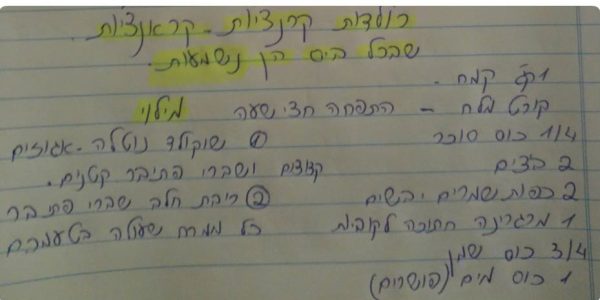 רולדות קרנציות - קראנציות.
שבכל ביס הן נשמעות.
1 קג קמח.
קורט מלח - התפחה חצי שעה מילוי
1/4 כוס סוכר ① שוקולד נוטלה - אגוזים
2 ביצים קצוצים ושברי פתיבר קטנים.
2 כפות שמרים יבשים ② ריבת חלב שברי פתיבר
1 מרגרינה חתוכה לקוביות כל ממרח שעולה בטעמכם
3/4 כוס שמן
1 כוס מים (פושרים)